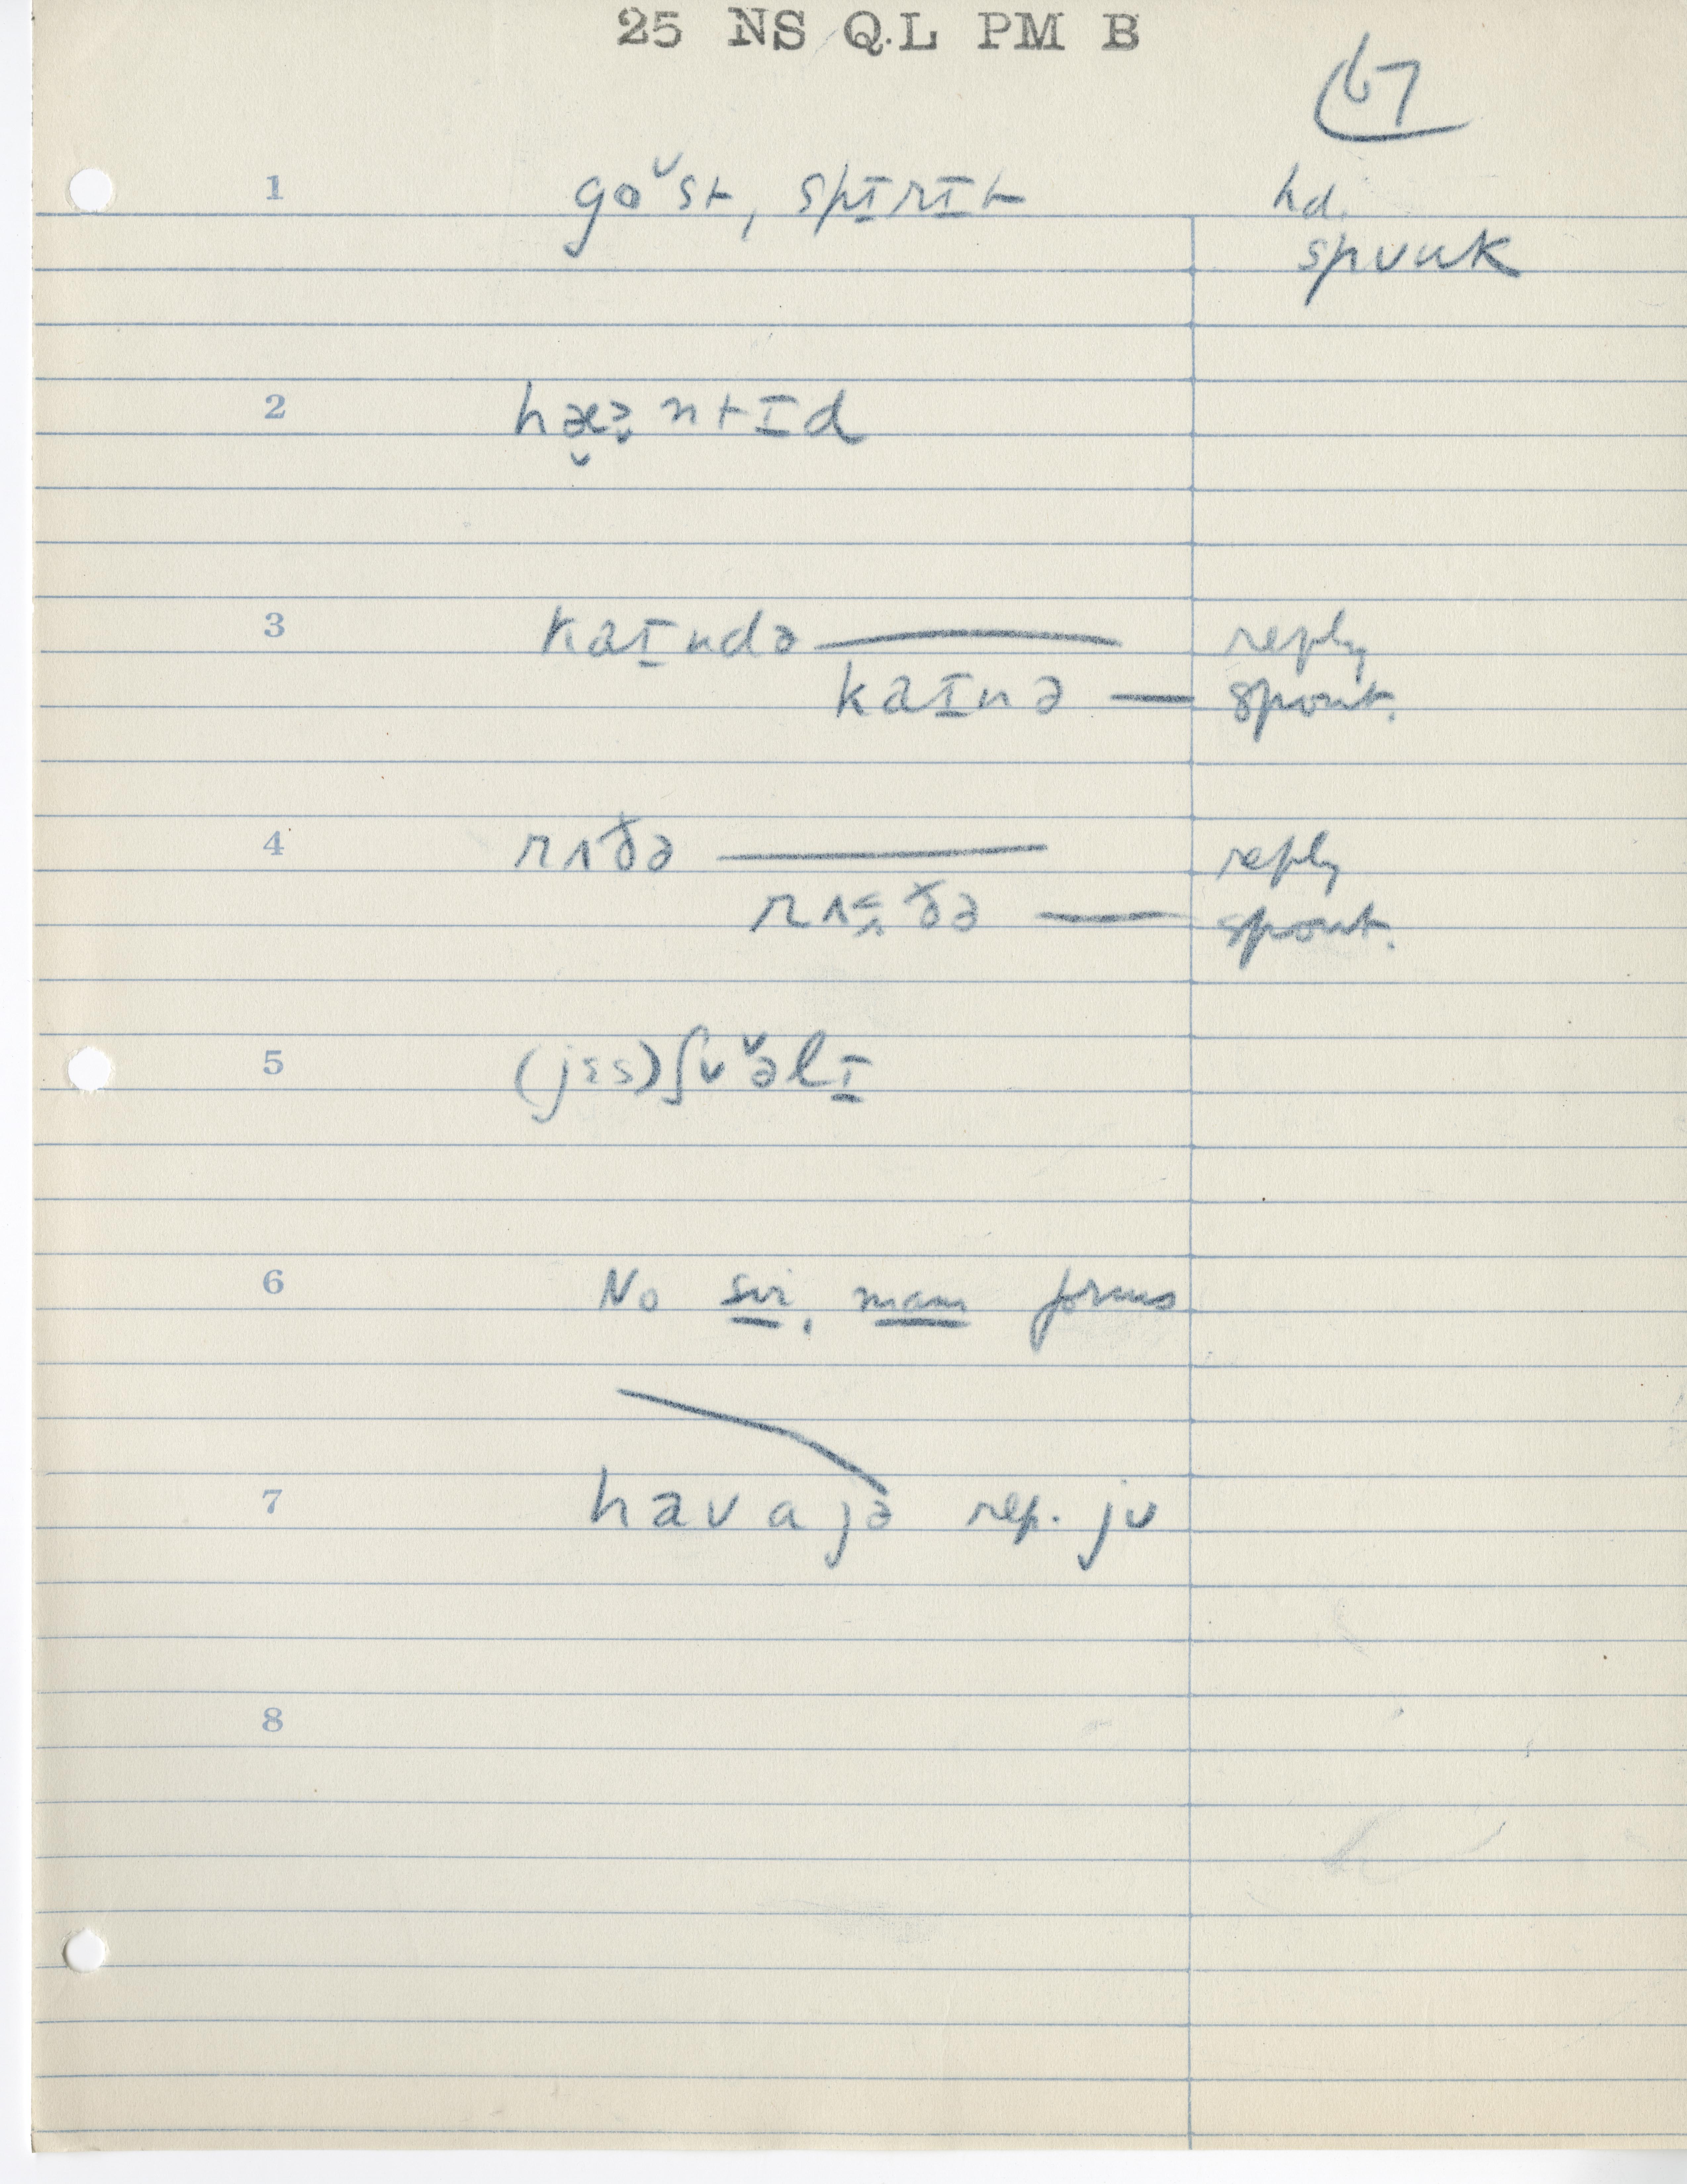 25 NS Q.L PM B
67
1 goᵛst, spɪrɪt hd.
spvuk
2 hæ̬ə̬ntɪd
3 kaɪndə — reply
kaɪnə — spont.
4 rʌðə — reply
rʌᵋðə — spont.
5 (jɛs) ʃʊᵛəlɪ
6 No sir, mam forms
7 havajə rep. ju
8